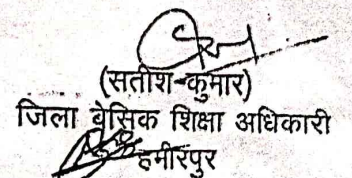 (सतीश कुमार)
जिला बेसिक शिक्षा अधिकारी
हमीरपुर